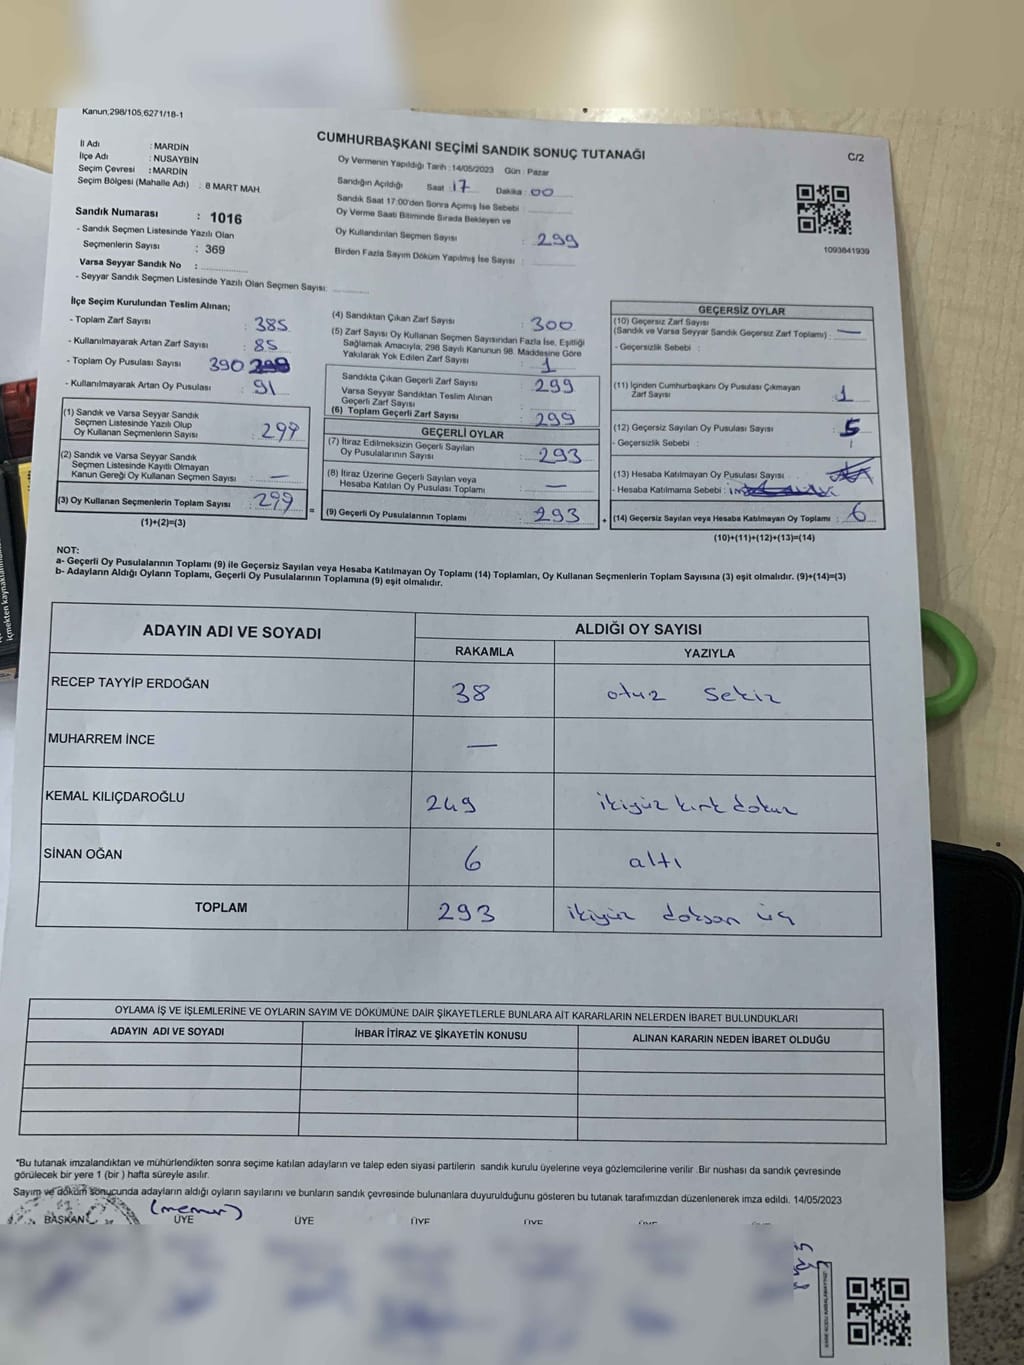 Kanun,298/105,6271/18-1
CUMHURBAŞKANI SEÇİMİ SANDIK SONUÇ TUTANAĞI
C/2
İl Adı : MARDİN
İlçe Adı : NUSAYBİN
Seçim Çevresi : MARDİN
Seçim Bölgesi (Mahalle Adı) : 8 MART MAH.
Sandık Numarası : 1016
- Sandık Seçmen Listesinde Yazılı Olan
Seçmenlerin Sayısı : 369
Varsa Seyyar Sandık No :
- Seyyar Sandık Seçmen Listesinde Yazılı Olan Seçmen Sayısı:
Oy Vermenin Yapıldığı Tarih :14/05/2023 Gün : Pazar
Sandığın Açıldığı Saat : 17 Dakika : 00
Sandık Saat 17:00'den Sonra Açımış İse Sebebi :
Oy Verme Saati Bitiminde Sırada Bekleyen ve
Oy Kullandırılan Seçmen Sayısı : 299
Birden Fazla Sayım Döküm Yapılmış İse Sayısı :
1093841939
İlçe Seçim Kurulundan Teslim Alınan;
- Toplam Zarf Sayısı : 385
- Kullanılmayarak Artan Zarf Sayısı : 85
- Toplam Oy Pusulası Sayısı 390
- Kullanılmayarak Artan Oy Pusulası : 91
(1) Sandık ve Varsa Seyyar Sandık
Seçmen Listesinde Yazılı Olup
Oy Kullanan Seçmenlerin Sayısı : 299
(2) Sandık ve Varsa Seyyar Sandık
Seçmen Listesinde Kayıtlı Olmayan
Kanun Gereği Oy Kullanan Seçmen Sayısı : —
(3) Oy Kullanan Seçmenlerin Toplam Sayısı : 299
(1)+(2)=(3)
(4) Sandıktan Çıkan Zarf Sayısı : 300
(5) Zarf Sayısı Oy Kullanan Seçmen Sayısından Fazla İse, Eşitliği
Sağlamak Amacıyla; 298 Sayılı Kanunun 98. Maddesine Göre
Yakılarak Yok Edilen Zarf Sayısı : 1
Sandıkta Çıkan Geçerli Zarf Sayısı : 299
Varsa Seyyar Sandıktan Teslim Alınan
Geçerli Zarf Sayısı :
(6) Toplam Geçerli Zarf Sayısı : 299
GEÇERLİ OYLAR
(7) İtiraz Edilmeksizin Geçerli Sayılan
Oy Pusulalarının Sayısı : 293
(8) İtiraz Üzerine Geçerli Sayılan veya
Hesaba Katılan Oy Pusulası Toplamı : —
(9) Geçerli Oy Pusulalarının Toplamı : 293
GEÇERSİZ OYLAR
(10) Geçersiz Zarf Sayısı
(Sandık ve Varsa Seyyar Sandık Geçersiz Zarf Toplamı) : —
- Geçersizlik Sebebi :
(11) İçinden Cumhurbaşkanı Oy Pusulası Çıkmayan
Zarf Sayısı : 1
(12) Geçersiz Sayılan Oy Pusulası Sayısı : 5
- Geçersizlik Sebebi :
(13) Hesaba Katılmayan Oy Pusulası Sayısı :
- Hesaba Katılmama Sebebi :
(14) Geçersiz Sayılan veya Hesaba Katılmayan Oy Toplamı : 6
(10)+(11)+(12)+(13)=(14)
NOT:
a- Geçerli Oy Pusulalarının Toplamı (9) ile Geçersiz Sayılan veya Hesaba Katılmayan Oy Toplamı (14) Toplamları, Oy Kullanan Seçmenlerin Toplam Sayısına (3) eşit olmalıdır. (9)+(14)=(3)
b- Adayların Aldığı Oyların Toplamı, Geçerli Oy Pusulalarının Toplamına (9) eşit olmalıdır.
ADAYIN ADI VE SOYADI
ALDIĞI OY SAYISI
RAKAMLA YAZIYLA
RECEP TAYYİP ERDOĞAN 38 otuz sekiz
MUHARREM İNCE —
KEMAL KILIÇDAROĞLU 249 ikiyüz kırk dokuz
SİNAN OĞAN 6 altı
TOPLAM 293 ikiyüz doksan üç
OYLAMA İŞ VE İŞLEMLERİNE VE OYLARIN SAYIM VE DÖKÜMÜNE DAİR ŞİKAYETLERLE BUNLARA AİT KARARLARIN NELERDEN İBARET BULUNDUKLARI
ADAYIN ADI VE SOYADI İHBAR İTİRAZ VE ŞİKAYETİN KONUSU ALINAN KARARIN NEDEN İBARET OLDUĞU
*Bu tutanak imzalandıktan ve mühürlendikten sonra seçime katılan adayların ve talep eden siyasi partilerin sandık kurulu üyelerine veya gözlemcilerine verilir .Bir nüshası da sandık çevresinde
görülecek bir yere 1 (bir ) hafta süreyle asılır.
Sayım ve döküm sonucunda adayların aldığı oyların sayılarını ve bunların sandık çevresinde bulunanlara duyurulduğunu gösteren bu tutanak tarafımızdan düzenlenerek imza edildi. 14/05/2023
(memur)
BAŞKAN ÜYE ÜYE ÜYE ÜYE